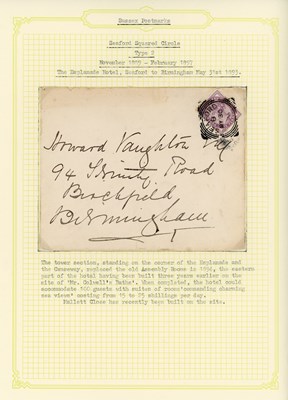 Sussex Postmarks
Seaford Squared Circle
Type 2
November 1889 - February 1897
The Esplanade Hotel, Seaford to Birmingham May 31st 1893.
Howard Vaughton Esq
94 Trinity Road
Birchfield
Birmingham
The tower section, standing on the corner of the Esplanade and
the Causeway, replaced the old Assembly Rooms in 1894, the eastern
part of the hotel having been built three years earlier on the
site of 'Mr. Colwell's Baths'. When completed, the hotel would
accommodate 100 guests with suites of rooms 'commanding charming
sea views' costing from 15 to 25 shillings per day.
Pullett Close has recently been built on the site.